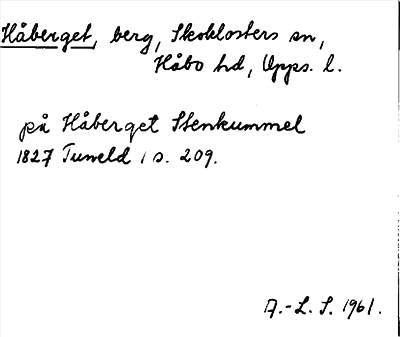 Håberget, berg, Skoklosters sn,
Håbo hd, Upps. l.
på Håberget Stenkummel
1827 Tuneld 1 s. 209.
A.-L. S. 1961.